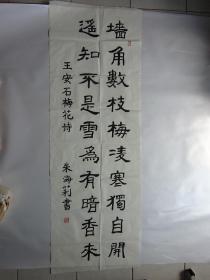 墙角數枝梅凌寒獨自開
遥知不是雪為有暗香來
王安石梅花诗
朱海莉書